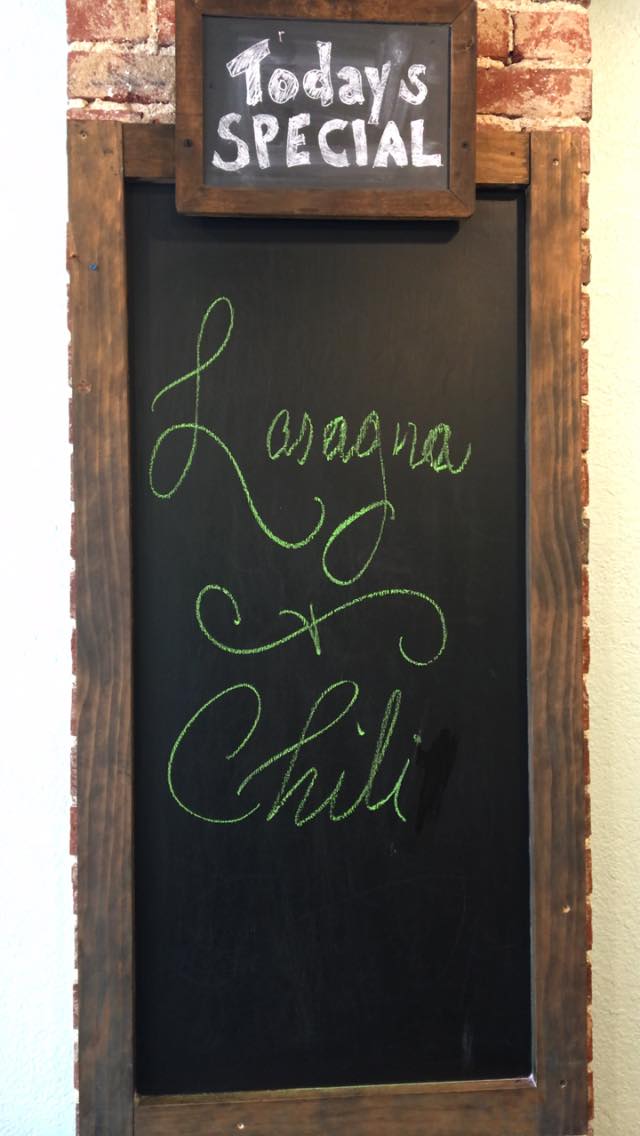 Today's
SPECIAL
Lasagna
Chili